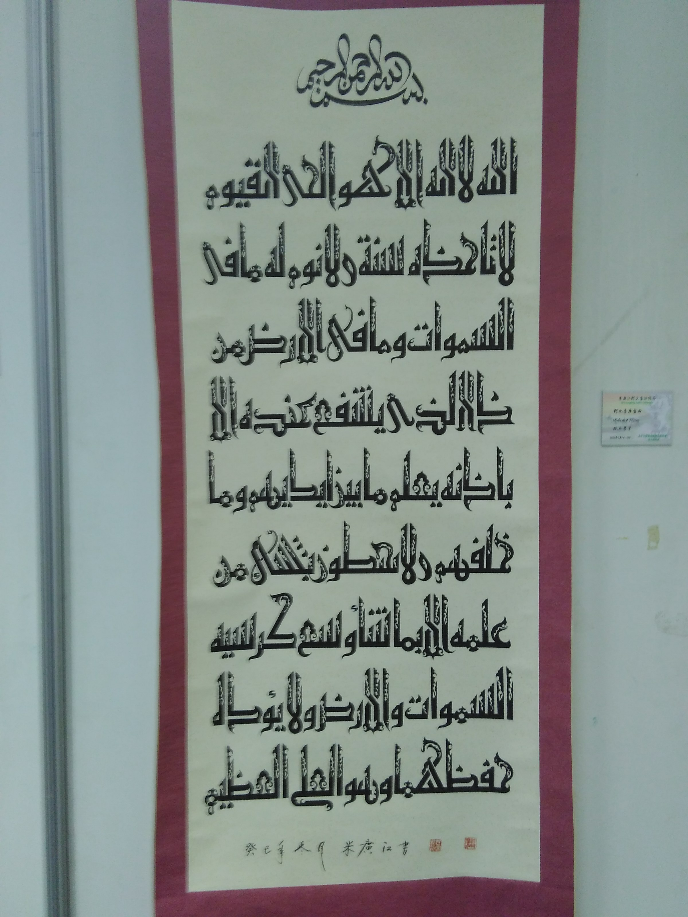 بسم الله الرحمن الرحيم
الله لا اله الا هو الحى القيوم
لا تاخذه سنة ولا نوم له ما فى
السموات وما فى الارض من
ذا الذى يشفع عنده الا
باذنه يعلم ما بين ايديهم وما
خلفهم ولا يحيطون بشى من
علمه الا بما شأ وسع كرسيه
السموات والارض ولا يؤده
حفظهما وهو العلى العظيم
癸巳年冬月 米廣江書